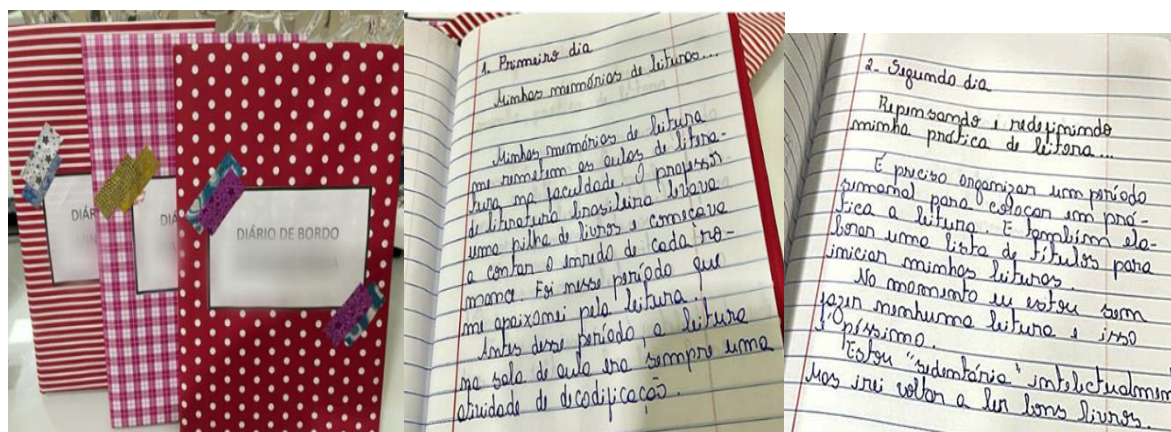 DIÁR
DIÁ
DIÁRIO DE BORDO
1. Primeiro dia
Minhas memórias de leituras...
Minhas memórias de leitura
me remetem as aulas de litera-
tura na faculdade. O professor
de literatura brasileira levava
uma pilha de livros e começava
a contar o enredo de cada ro-
mance. Foi nesse período que
me apaixonei pela leitura.
Antes desse período a leitura
na sala de aula era sempre uma
atividade de decodificação.
2- Segundo dia
Repensando e redefinindo
minha prática de leitora...
É preciso organizar um período
semanal para colocar em prá-
tica a leitura. E também ela-
borar uma lista de títulos para
iniciar minhas leituras.
No momento eu estou sem
fazer nenhuma leitura e isso
é péssimo.
Estou "sedentária" intelectualmen
Mas irei voltar a ler bons livros.